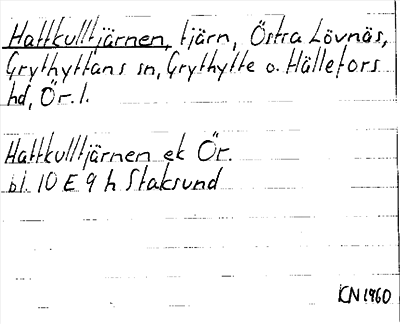 Hattkulltjärnen, tjärn, Östra Lövnäs,
Grythyttans sn, Grythytte o. Hällefors
hd, Ör. l.
Hattkulltjärnen ek Ör.
bl. 10 E 9 h Staksund
KN 1960